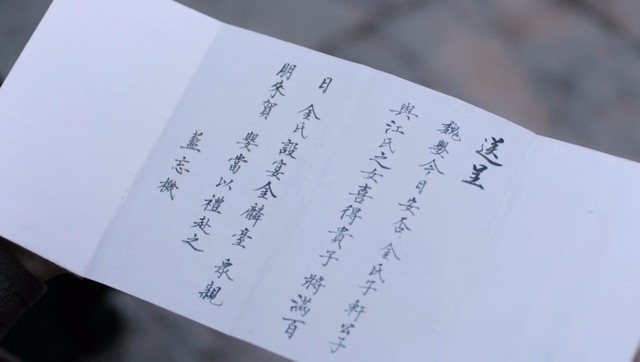 送呈
魏嬰今日安否 金氏子軒公子
與江氏之女喜得貴子將滿百
日 金氏設宴金麟臺 眾親
朋來賀 嬰當以禮赴之
藍忘機